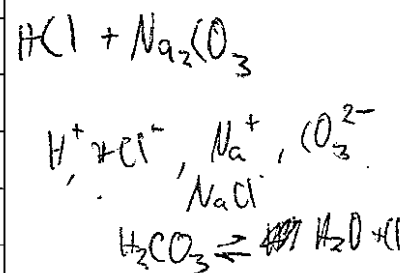 HCl + Na₂CO₃
H⁺, Cl⁻, Na⁺, CO₃²⁻
NaCl
H₂CO₃ ⇌ H₂O + C